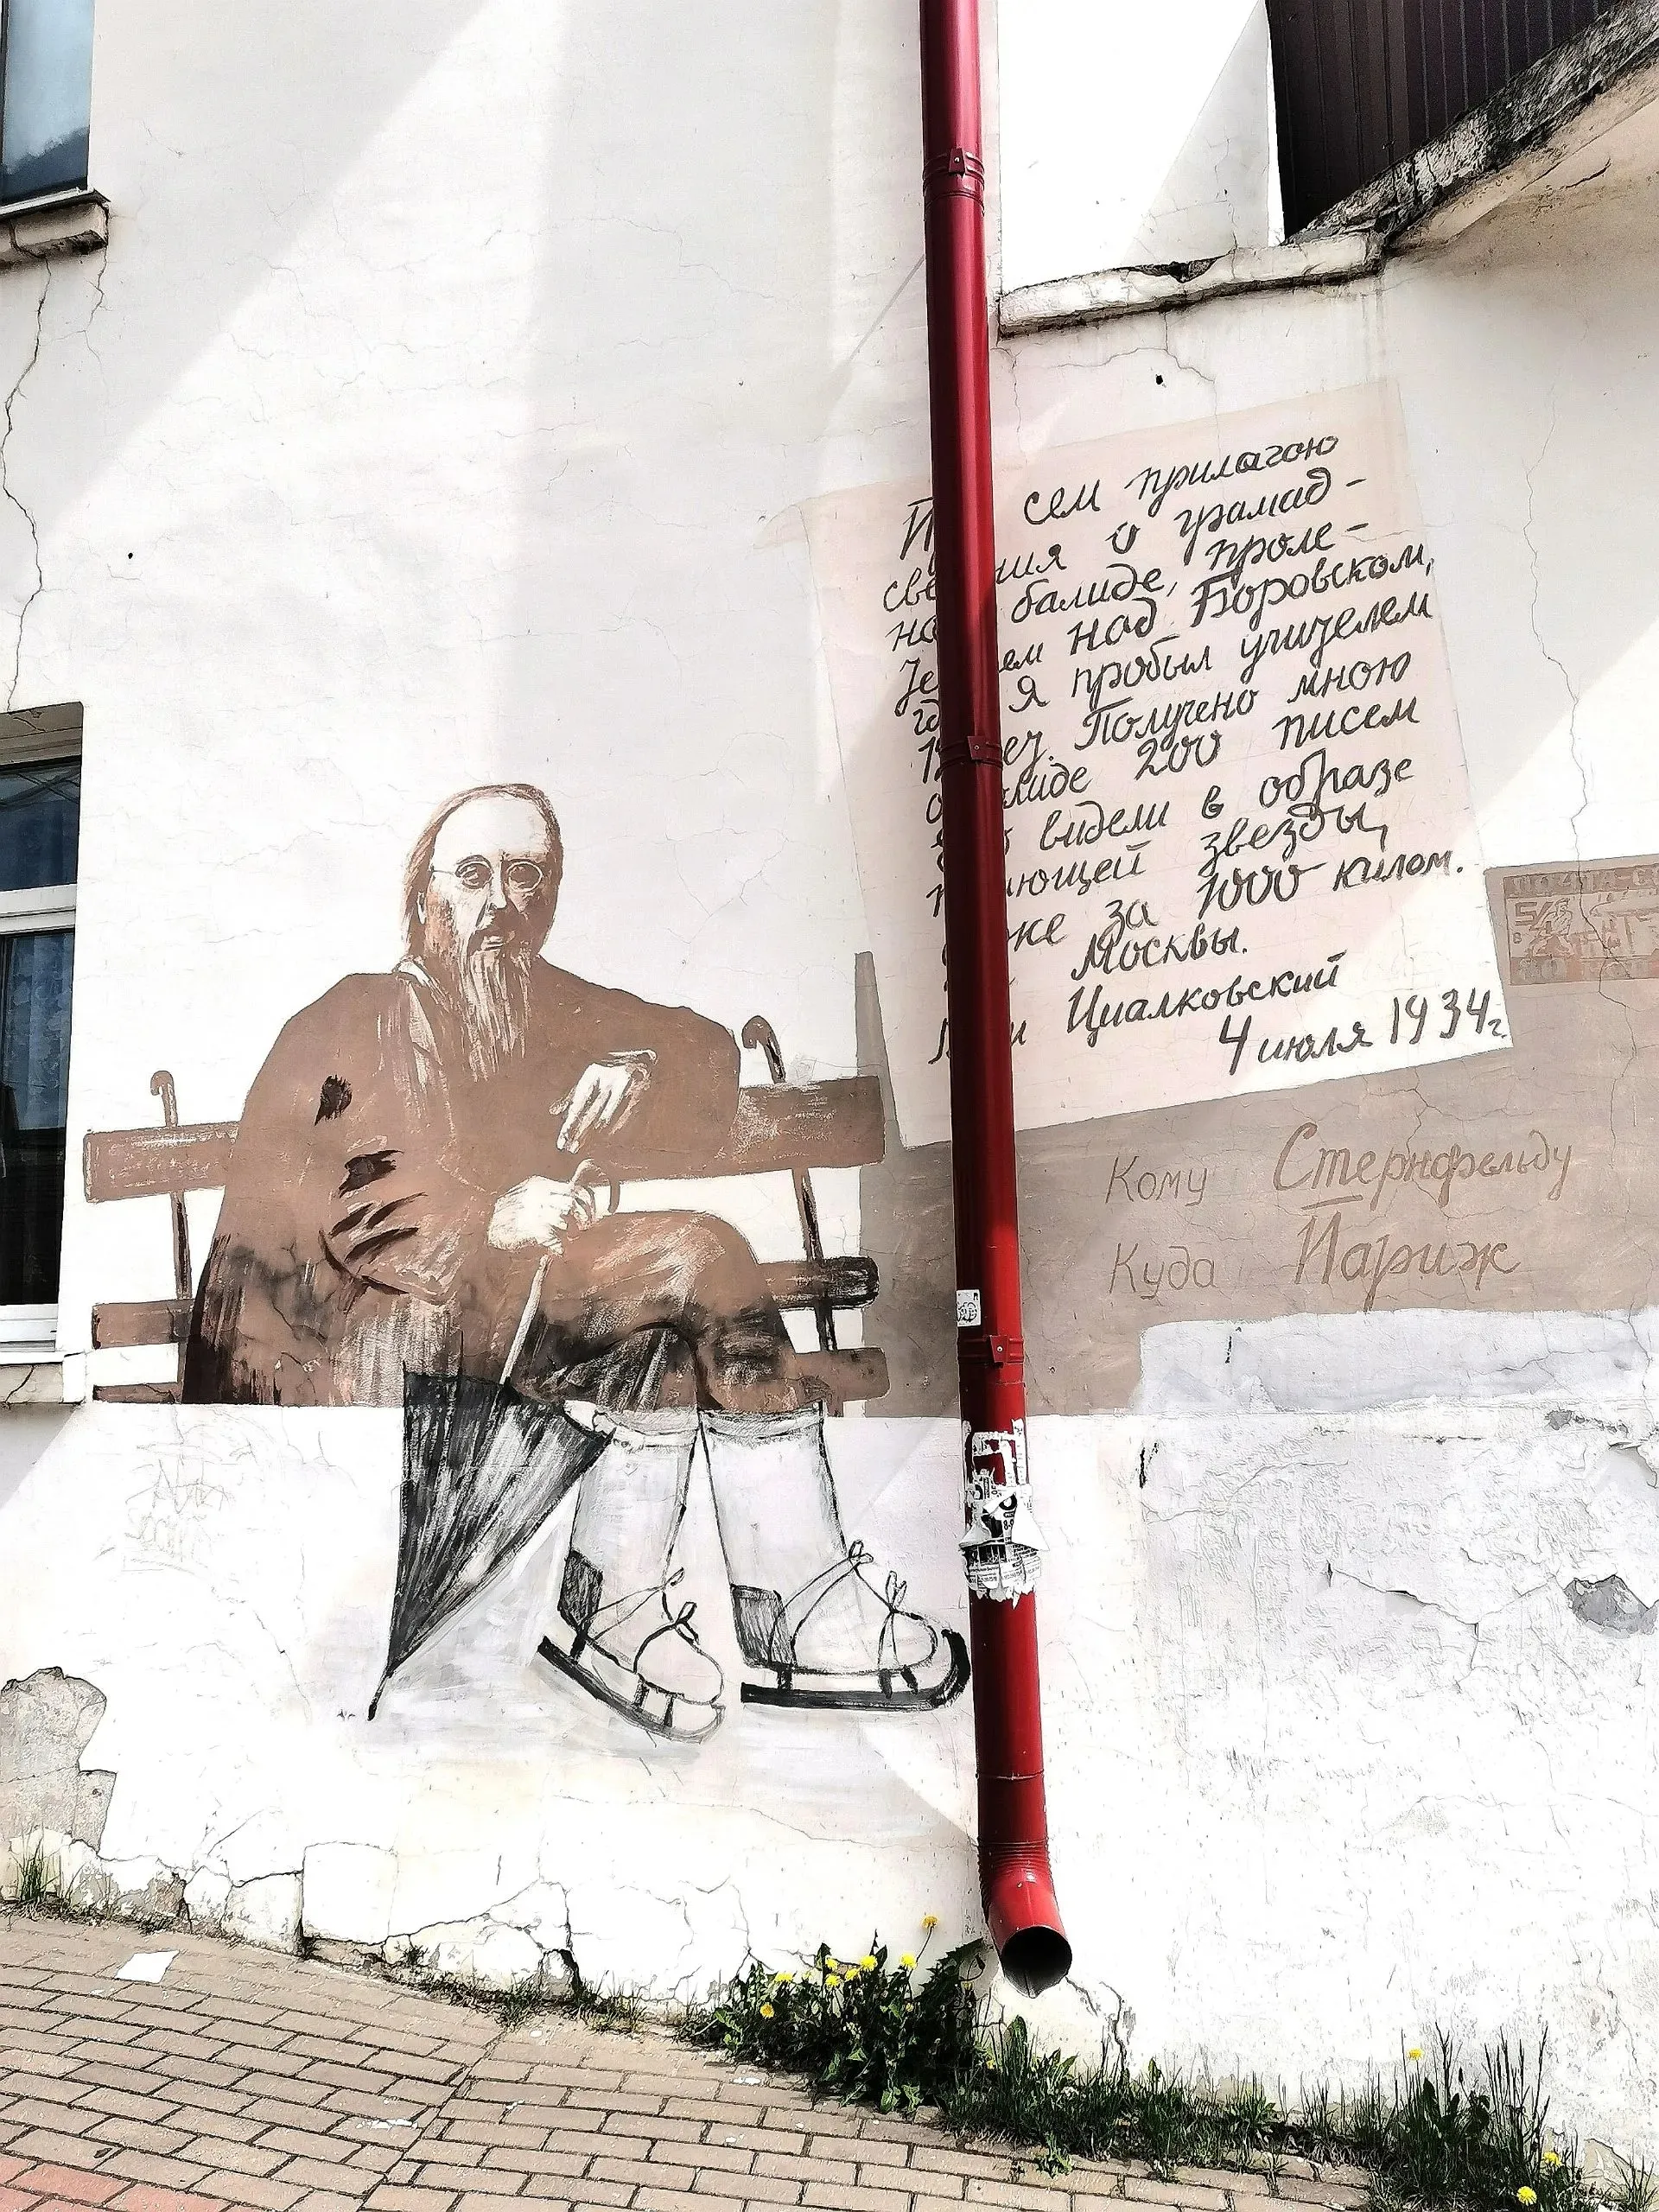 П сем прилагаю
све ния о грамад-
но балиде, проле-
Те ем над Боровском,
гд я пробыл учителем
12 лет. Получено мною
о лиде 200 писем
е о видели в образе
п ающей звезды,
же за 1000 килом.
Москвы.
Циалковский
4 июля 1934г.
Кому Стернфельду
Куда Париж